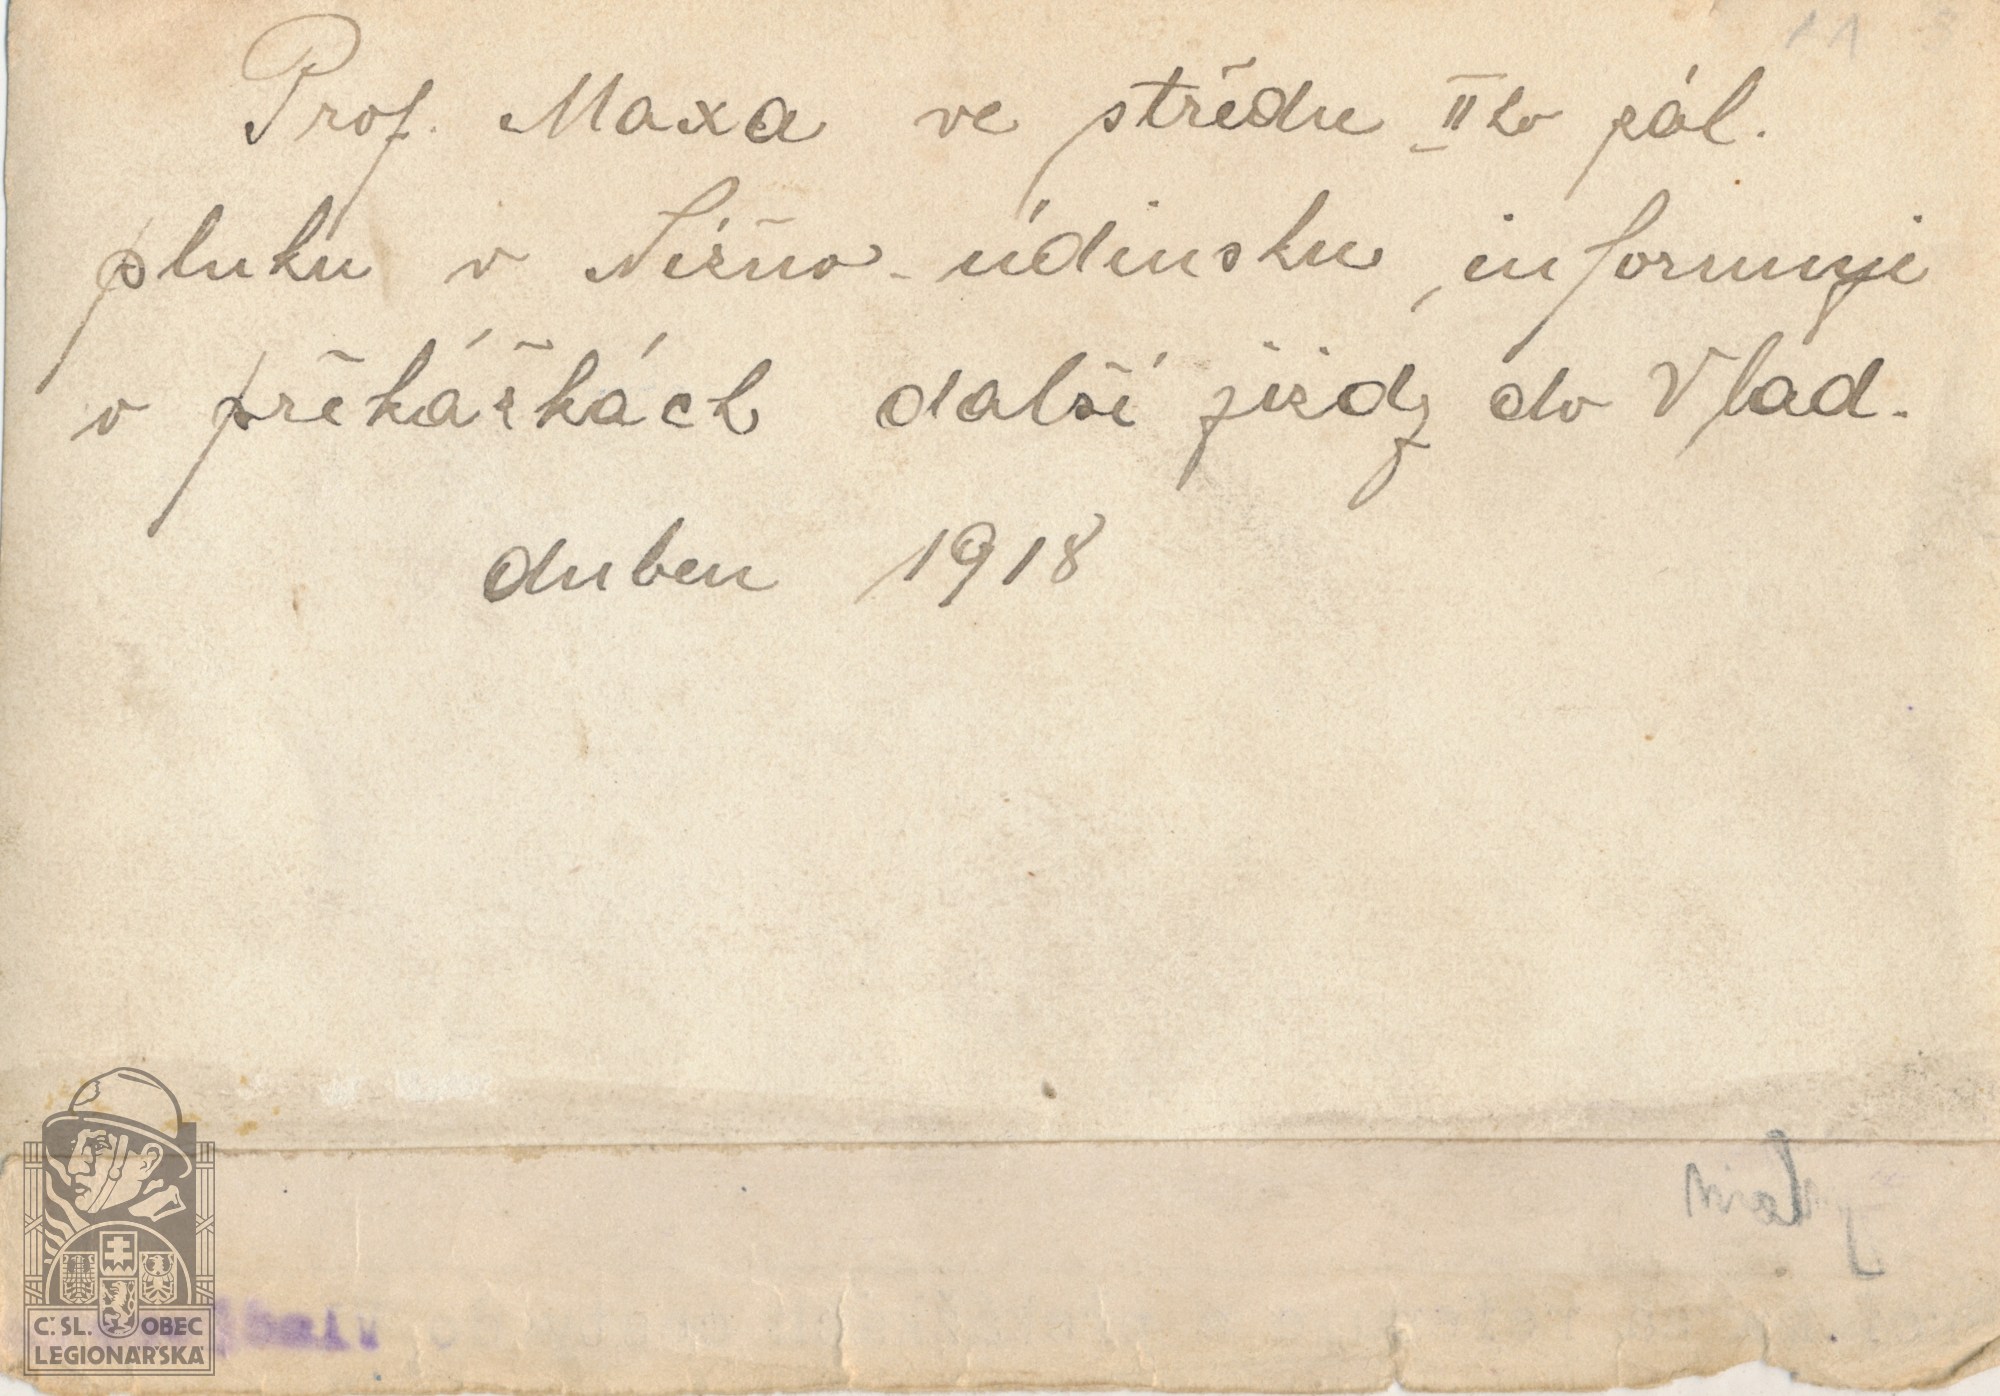 Prof. Maxa ve středu II ho pěl.
pluku v Nižno-údinsku, informuje
o překážkách další jizdy do Vlad.
duben 1918
11
Č.SL. OBEC
LEGIONÁŘSKÁ